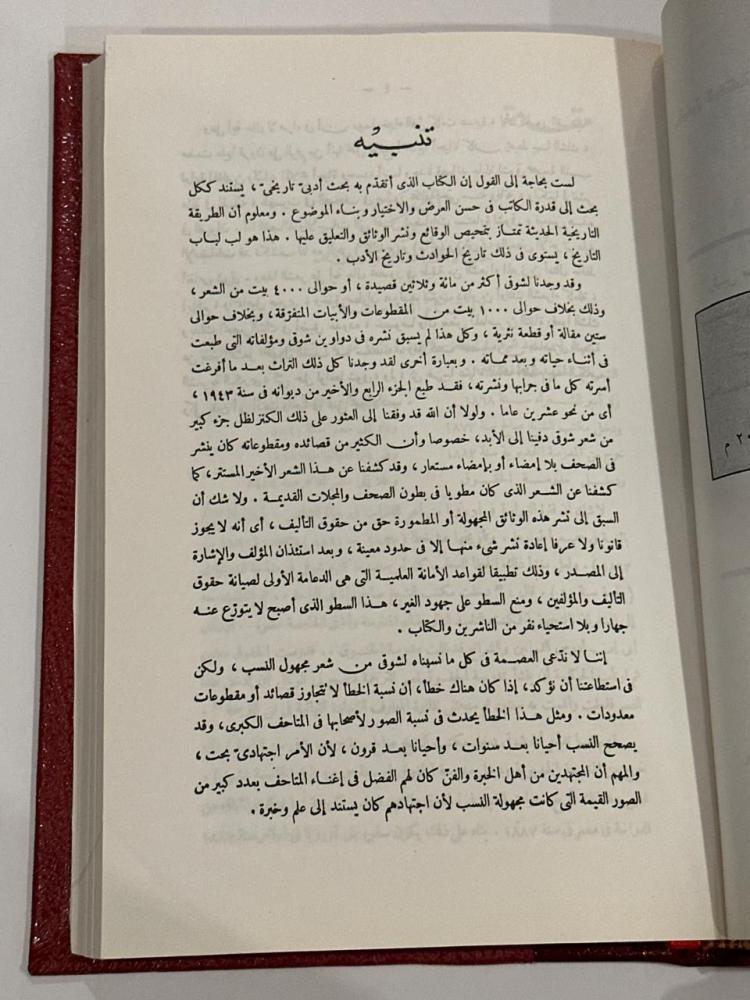 تنبيه
لست بحاجة إلى القول إن الكتاب الذى أتقدّم به بحث أدبىّ تاريخىّ ، يستند ككل
بحث إلى قدرة الكاتب فى حسن العرض والاختيار وبناء الموضوع . ومعلوم أن الطريقة
التاريخية الحديثة تمتاز بتمحيص الوقائع ونشر الوثائق والتعليق عليها . هذا هو لب لباب
التاريخ ، يستوى فى ذلك تاريخ الحوادث وتاريخ الأدب .
وقد وجدنا لشوقى أكثر من مائة وثلاثين قصيدة ، أو حوالى ٤٠٠٠ بيت من الشعر ،
وذلك بخلاف حوالى ١٠٠٠ بيت من المقطوعات والأبيات المتفرّقة ، وبخلاف حوالى
ستين مقالة أو قطعة نثرية ، وكل هذا لم يسبق نشره فى دواوين شوقى ومؤلفاته التى طبعت
فى أثناء حياته وبعد مماته . وبعبارة أخرى لقد وجدنا كل ذلك التراث بعد ما أفرغت
أسرته كل ما فى جرابها ونشرته ، فقد طبع الجزء الرابع والأخير من ديوانه فى سنة ١٩٤٣ ،
أى من نحو عشرين عاما . ولولا أن الله قد وفقنا إلى العثور على ذلك الكنز لظل جزء كبير
من شعر شوقى دفينا إلى الأبد ، خصوصا وأن الكثير من قصائده ومقطوعاته كان ينشر
فى الصحف بلا إمضاء أو بإمضاء مستعار ، وقد كشفنا عن هذا الشعر الأخير المستتر ، كما
كشفنا عن الشعر الذى كان مطويا فى بطون الصحف والمجلات القديمة . ولا شك أن
السبق إلى نشر هذه الوثائق المجهولة أو المطمورة حق من حقوق التأليف ، أى أنه لا يجوز
قانونا ولا عرفا إعادة نشر شىء منها إلا فى حدود معينة ، وبعد استئذان المؤلف والإشارة
إلى المصدر ، وذلك تطبيقا لقواعد الأمانة العلمية التى هى الدعامة الأولى لصيانة حقوق
التأليف والمؤلفين ، ومنع السطو على جهود الغير ، هذا السطو الذى أصبح لا يتورّع عنه
جهارا وبلا استحياء نفر من الناشرين والكتاب .
إننا لا ندّعى العصمة فى كل ما نسبناه لشوقى من شعر مجهول النسب ، ولكن
فى استطاعتنا أن نؤكد ، إذا كان هناك خطأ ، أن نسبة الخطأ لا تتجاوز قصائد أو مقطوعات
معدودات . ومثل هذا الخطأ يحدث فى نسبة الصور لأصحابها فى المتاحف الكبرى ، وقد
يصحح النسب أحيانا بعد سنوات ، وأحيانا بعد قرون ، لأن الأمر اجتهادىّ بحت ،
والمهم أن المجتهدين من أهل الخبرة والفنّ كان لهم الفضل فى إغناء المتاحف بعدد كبير من
الصور القيمة التى كانت مجهولة النسب لأن اجتهادهم كان يستند إلى علم وخبرة .